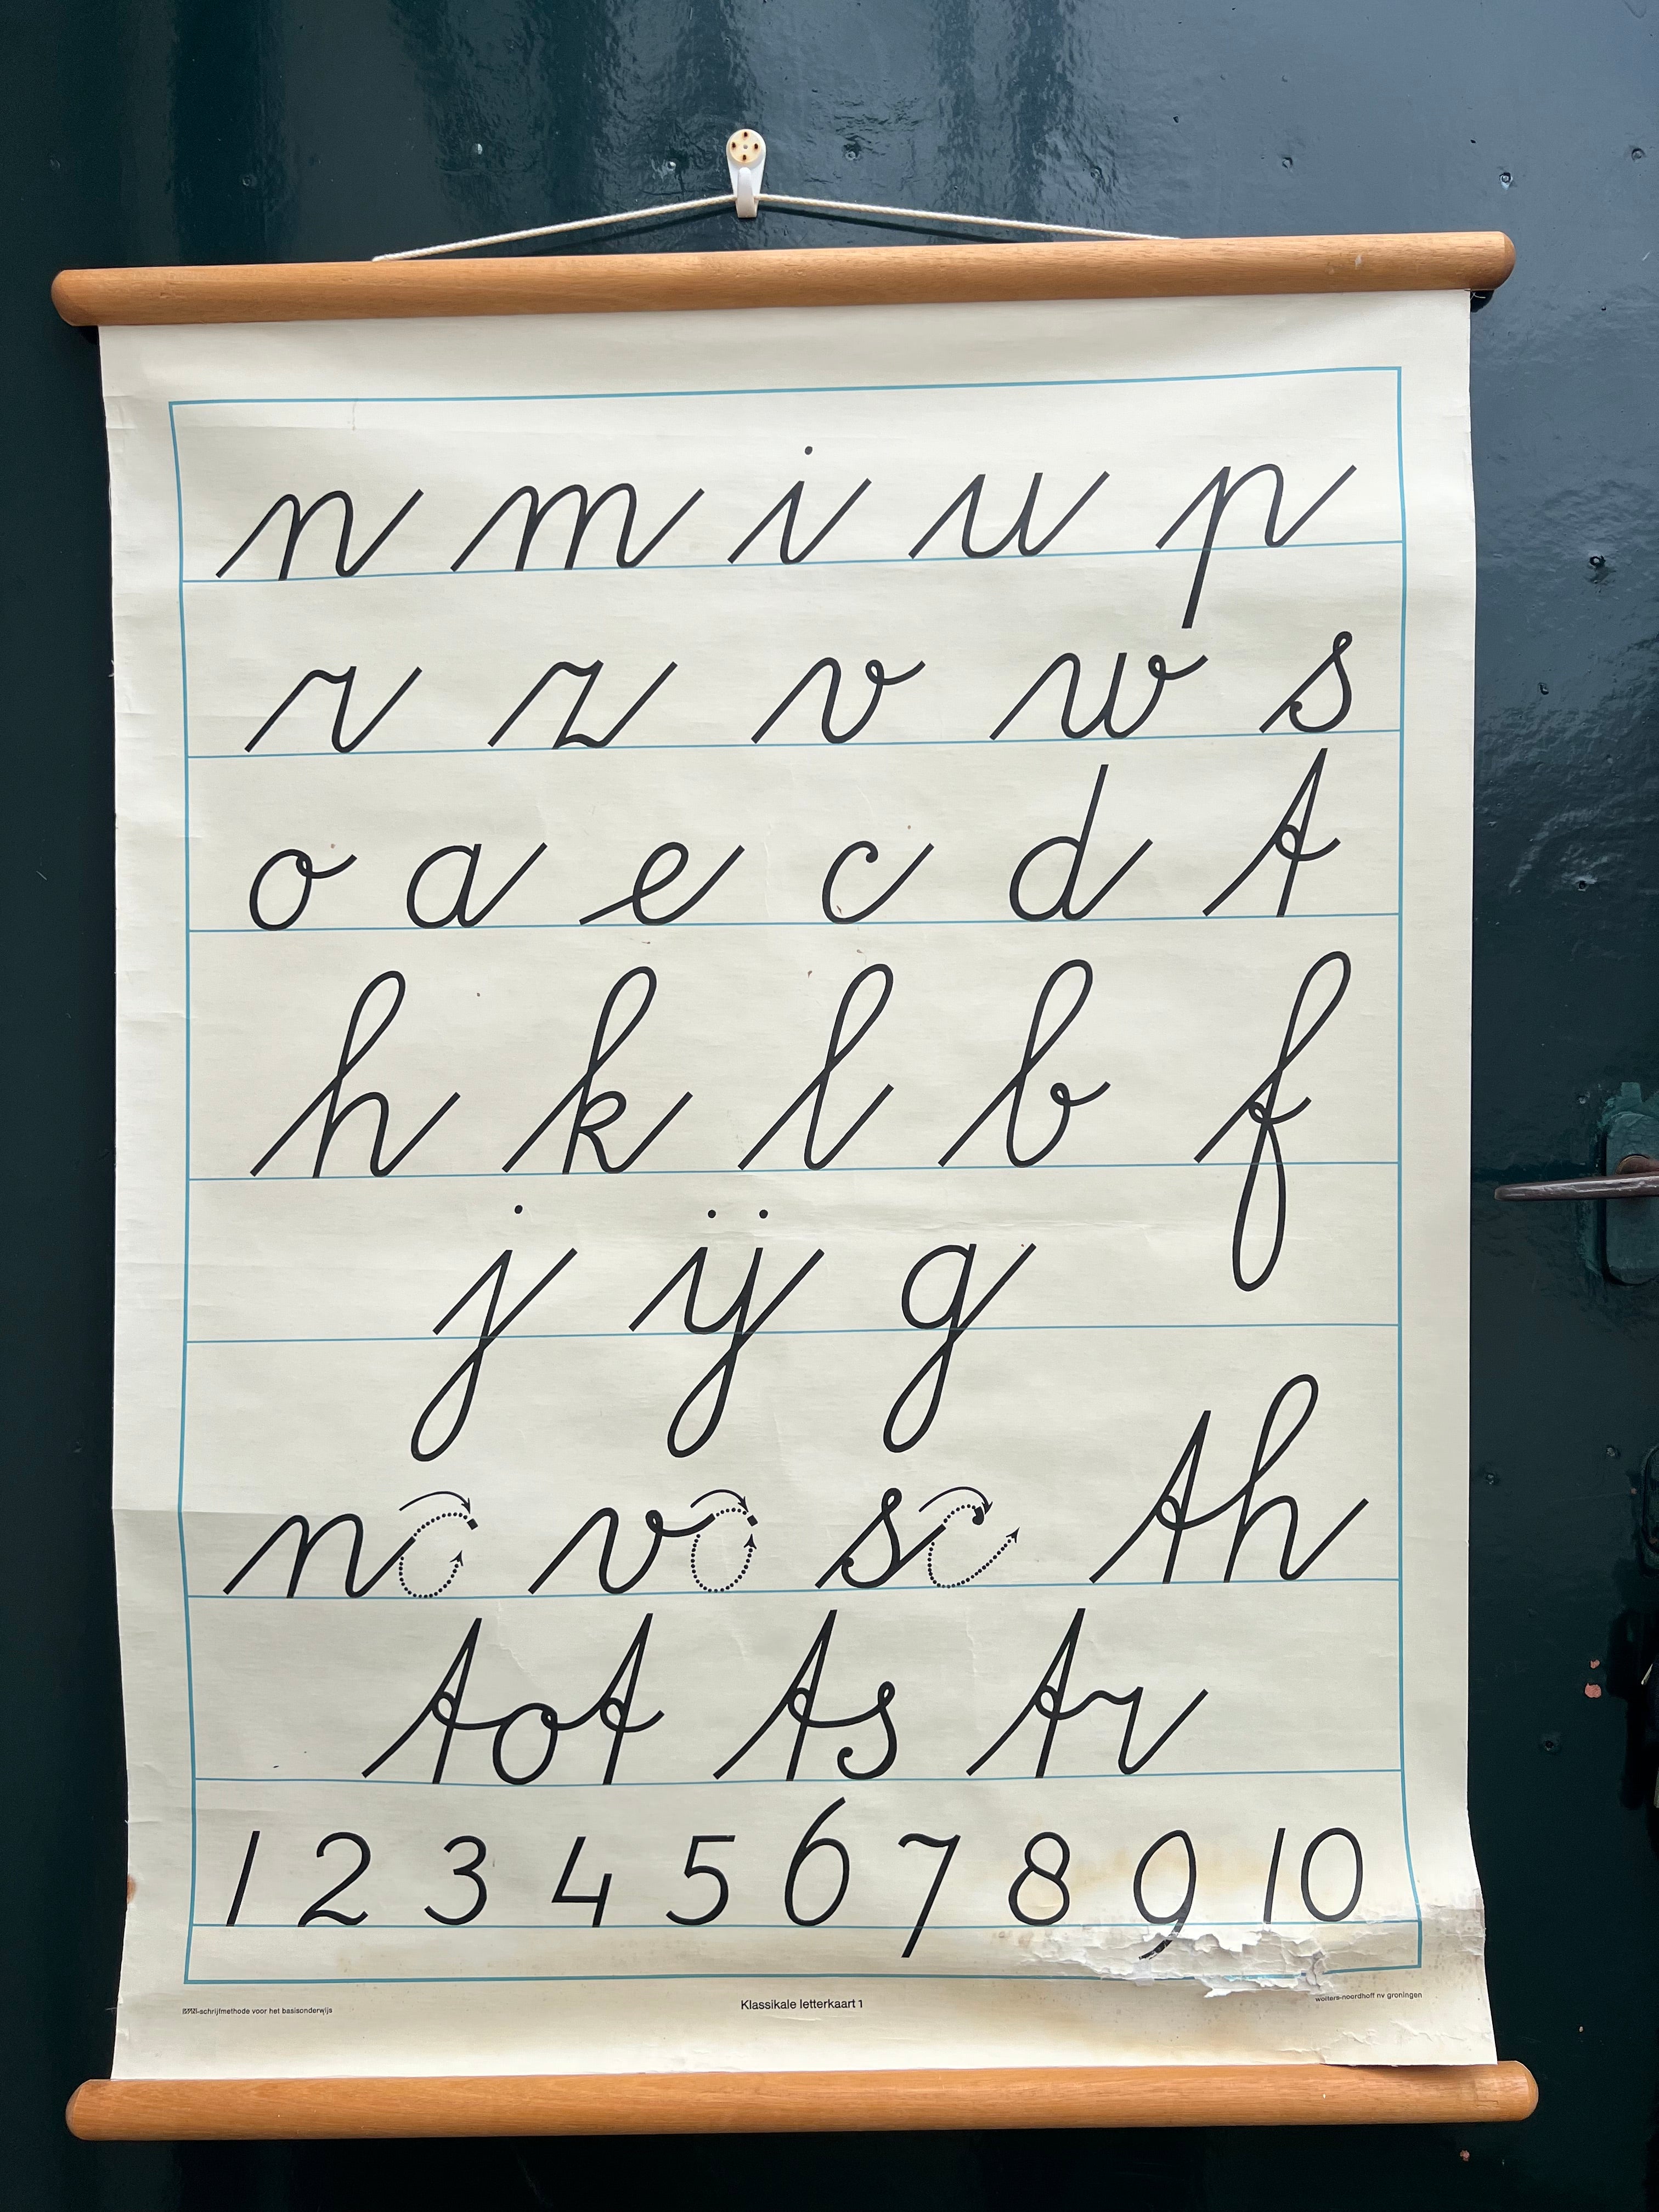 n m i u p
r z v w s
o a e c d t
h k l b f
j ij g
no vo sc th
tot ts tr
1 2 3 4 5 6 7 8 9 10
-schrijfmethode voor het basisonderwijs
Klassikale letterkaart 1
wolters-noordhoff nv groningen